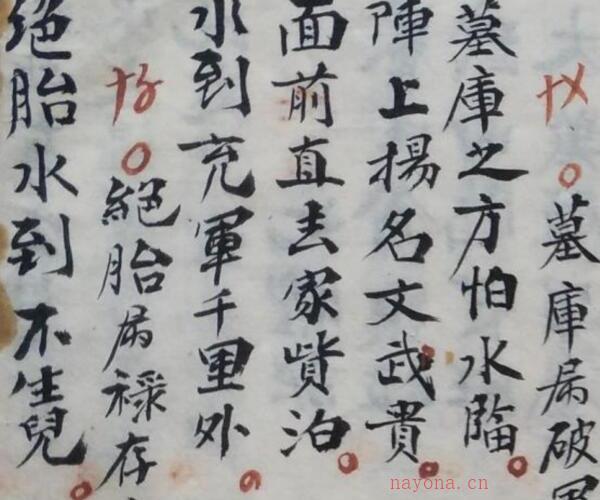 十〤○墓庫属破軍
墓庫之方怕水臨
陣上揚名文武貴
面前直去家貲泊
水到充軍千里外
十〥○絕胎属禄存
絕胎水到不生兒
nayona.cn